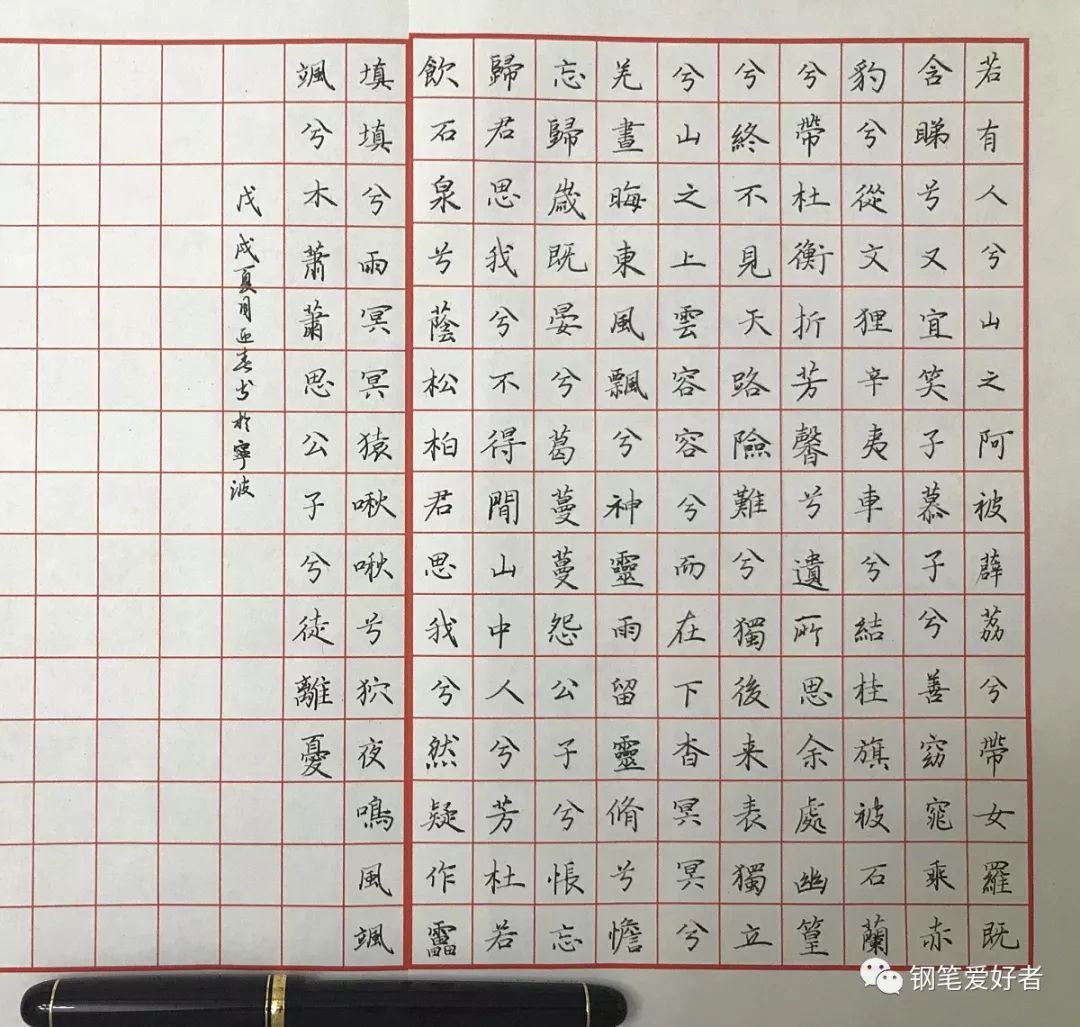 若有人兮山之阿被薜荔兮帶女羅既
含睇兮又宜笑子慕子兮善窈窕乘赤
豹兮從文狸辛夷車兮結桂旗被石蘭
兮帶杜衡折芳馨兮遺所思余處幽篁
兮終不見天路險難兮獨後来表獨立
兮山之上雲容容兮而在下杳冥冥兮
羌晝晦東風飄兮神靈雨留靈脩兮憺
忘歸歲既晏兮葛蔓蔓怨公子兮悵忘
歸君思我兮不得閒山中人兮芳杜若
飲石泉兮蔭松柏君思我兮然疑作靁
填填兮雨冥冥猿啾啾兮狖夜鳴風颯
颯兮木蕭蕭思公子兮徒離憂
戊戌夏月春书於寧波
钢笔爱好者